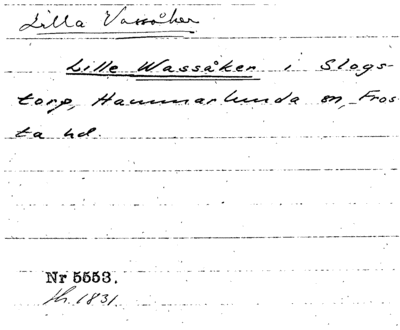 Lilla Vassåker
Lille Wassåker i Slogs-
torp, Hammarlunda sn, Fros
ta hd.
Nr 5553.
1831.